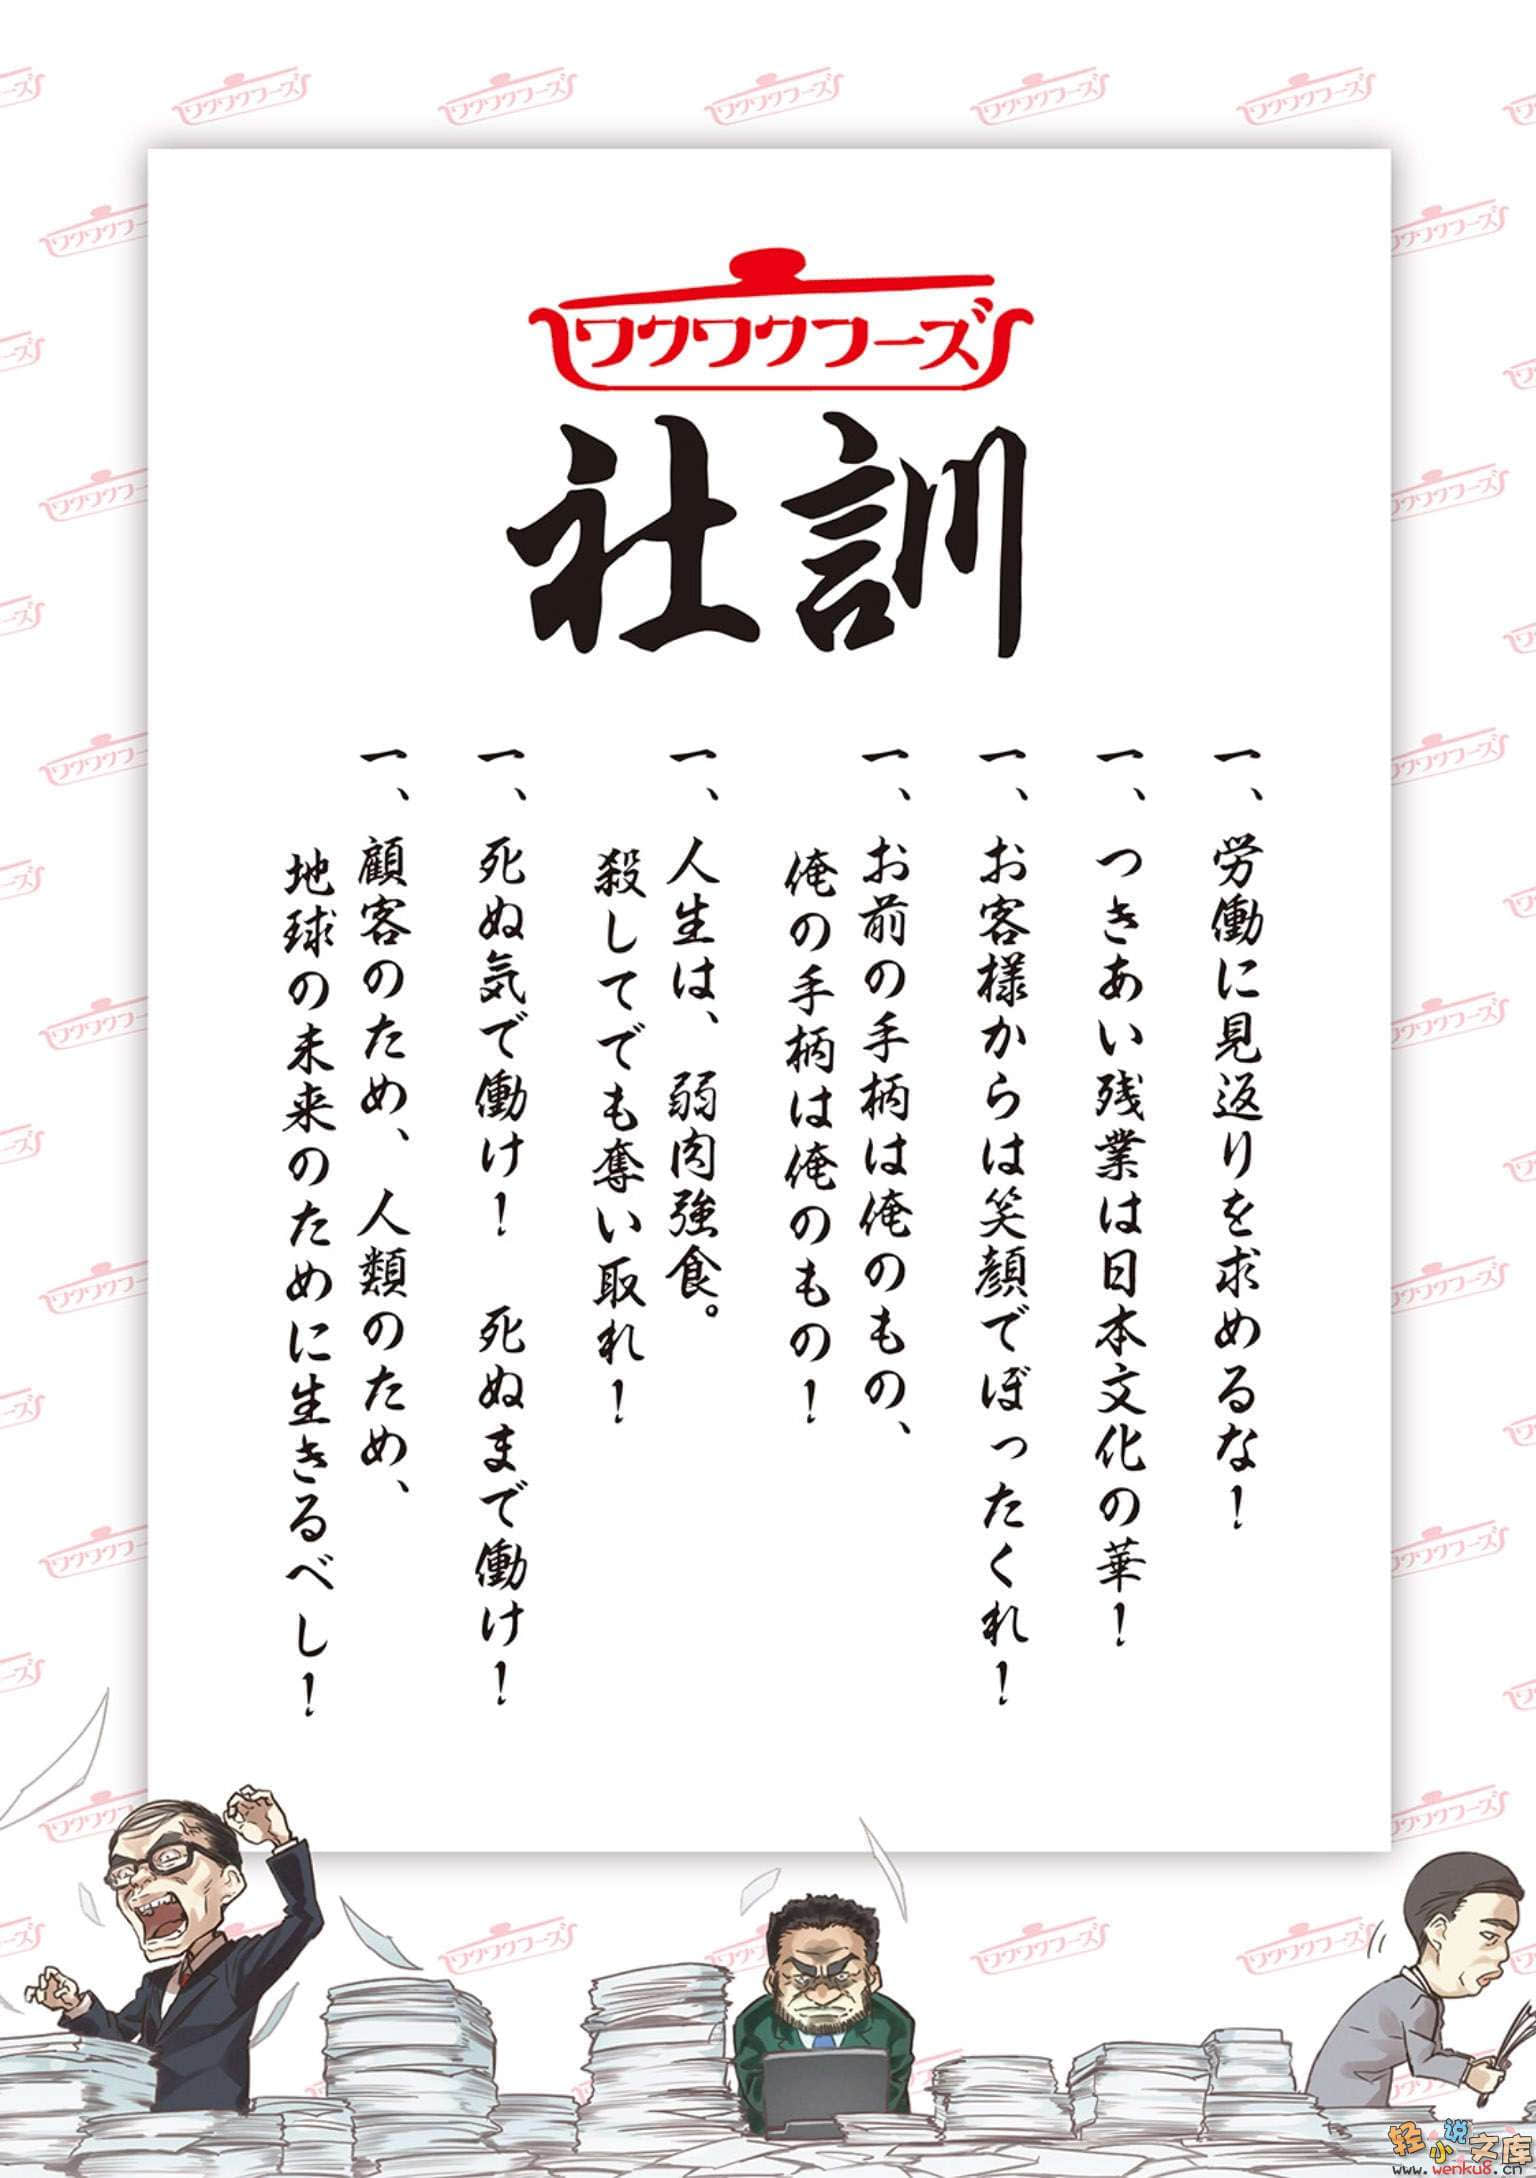 ワクワクフーズ
社訓
一、労働に見返りを求めるな！
一、つきあい残業は日本文化の華！
一、お客様からは笑顔でぼったくれ！
一、お前の手柄は俺のもの、
俺の手柄は俺のもの！
一、人生は、弱肉強食。
殺してでも奪い取れ！
一、死ぬ気で働け！　死ぬまで働け！
一、顧客のため、人類のため、
地球の未来のために生きるべし！
轻小说文库
www.wenku8.cn